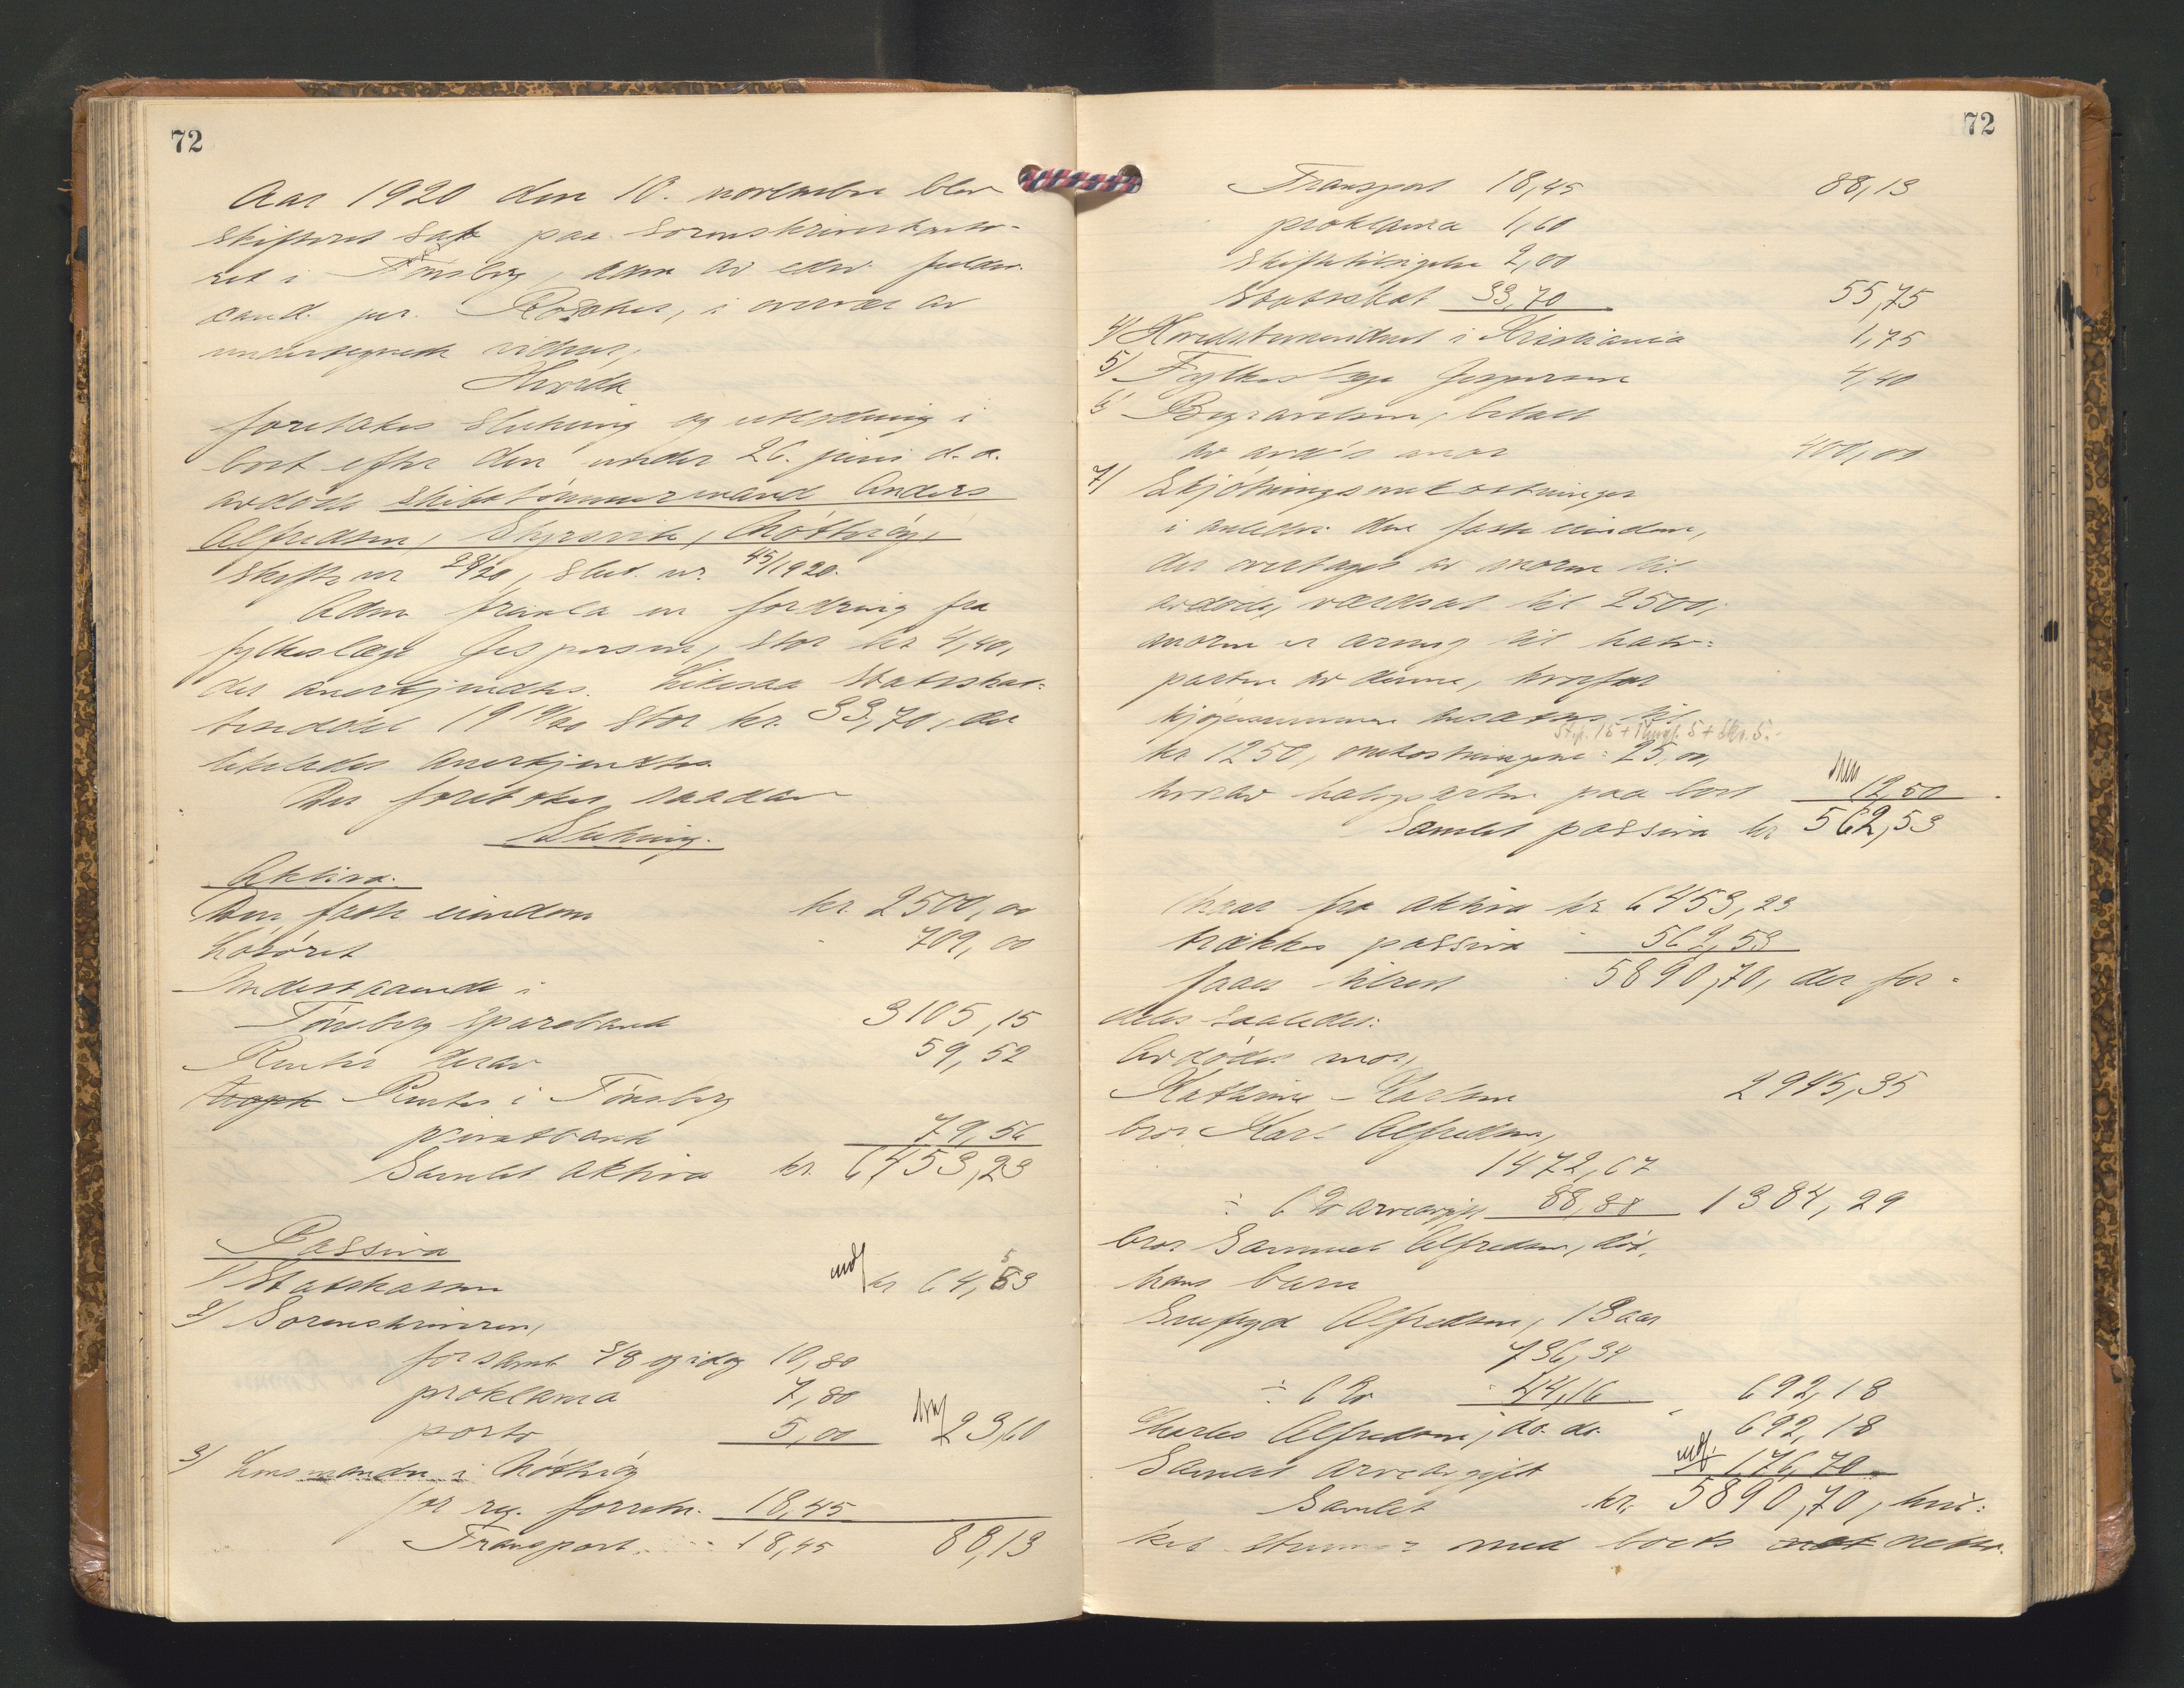 72
Aar 1920 den 10. november blev
skifteret sat paa sorenskriverkonto-
ret i Tönsberg, adm av edsv. fuldm.
cand. jur. Roscher, i overvær av
undertegnede vidner,
Hvorda
foretokes slutning og utlodning i
boet efter den under 26. juni d. a.
avdöde skibstömmermand Anders
Alfredsen, Skjersvik, Nötteröy,
skifte nr 28/20, slut. nr. 45/1920.
Adm fremla en fordring fra
fylkeslæge Jespersen, stor kr 4,40,
der anerkjendtes. Likesaa statsskat-
tenddel 1919/20 stor kr. 33,70, der
likeledes anerkjendtes.
Der foretokes saadan
Slutning.
Aktiva.
Den faste eiendom kr. 2500,00
Lösöret " 709,00
Indestaaende i
Tönsberg sparebank 3105,15
Renter derav 59,52
Renter i Tönsberg
privatbank 79,56
Samlet aktiva kr. 6453,23
Passiva
1) Statskassen indf kr 64,53
2) Sorenskriveren,
for saml. 3/8 og idag 10,80
proklama 7,80
porto 5,00 23,60
3) Lensmanden i Nötteröy
for reg. forretn. 18,45
Transport 18,45 88,13
72
Transport 18,45 88,13
proklama 1,60
Skiftetilsigelse 2,00
Statsskat 33,70 55,75
4) Herredstrommen i Kristiania 1,75
5) Fylkeslæge Jespersen 4,40
6) Begravelsen, betalt
av avd's mor 400,00
7) Skjötningsomkostninger
i anledn. den faste eiendom,
der overtages av moren til
avdöde, værdsat til 2500,
moren er arving til halv-
parten av denne, hvorfor
kjöpesummen ansættes til
St.p. 15 + Tingl. 5 + Skr. 5.-
kr 1250, omkostningene: 25,00,
hvorav halvparten paa boet 12,50
Samlet passiva kr 562,53
Naar fra aktiva kr 6453,23
trækkes passiva " 562,53
faaes tilrest " 5890,70, der for-
deles saaledes:
Avdödes mor,
Kathrine Karlsen 2945,35
bror Karl Alfredsen,
1472,67
÷ 6 % arveavgift 88,38 1384,29
bror Samuel Alfredsen, död,
hans barn
Alfredsen, 13 aar
736,34
÷ 6 % 44,16 692,18
Charles Alfredsen, do. do. " 692,18
Samlet arveavgift indf. 176,70
Samlet kr. 5890,70, hvil-
ket stemmer med boets netto.